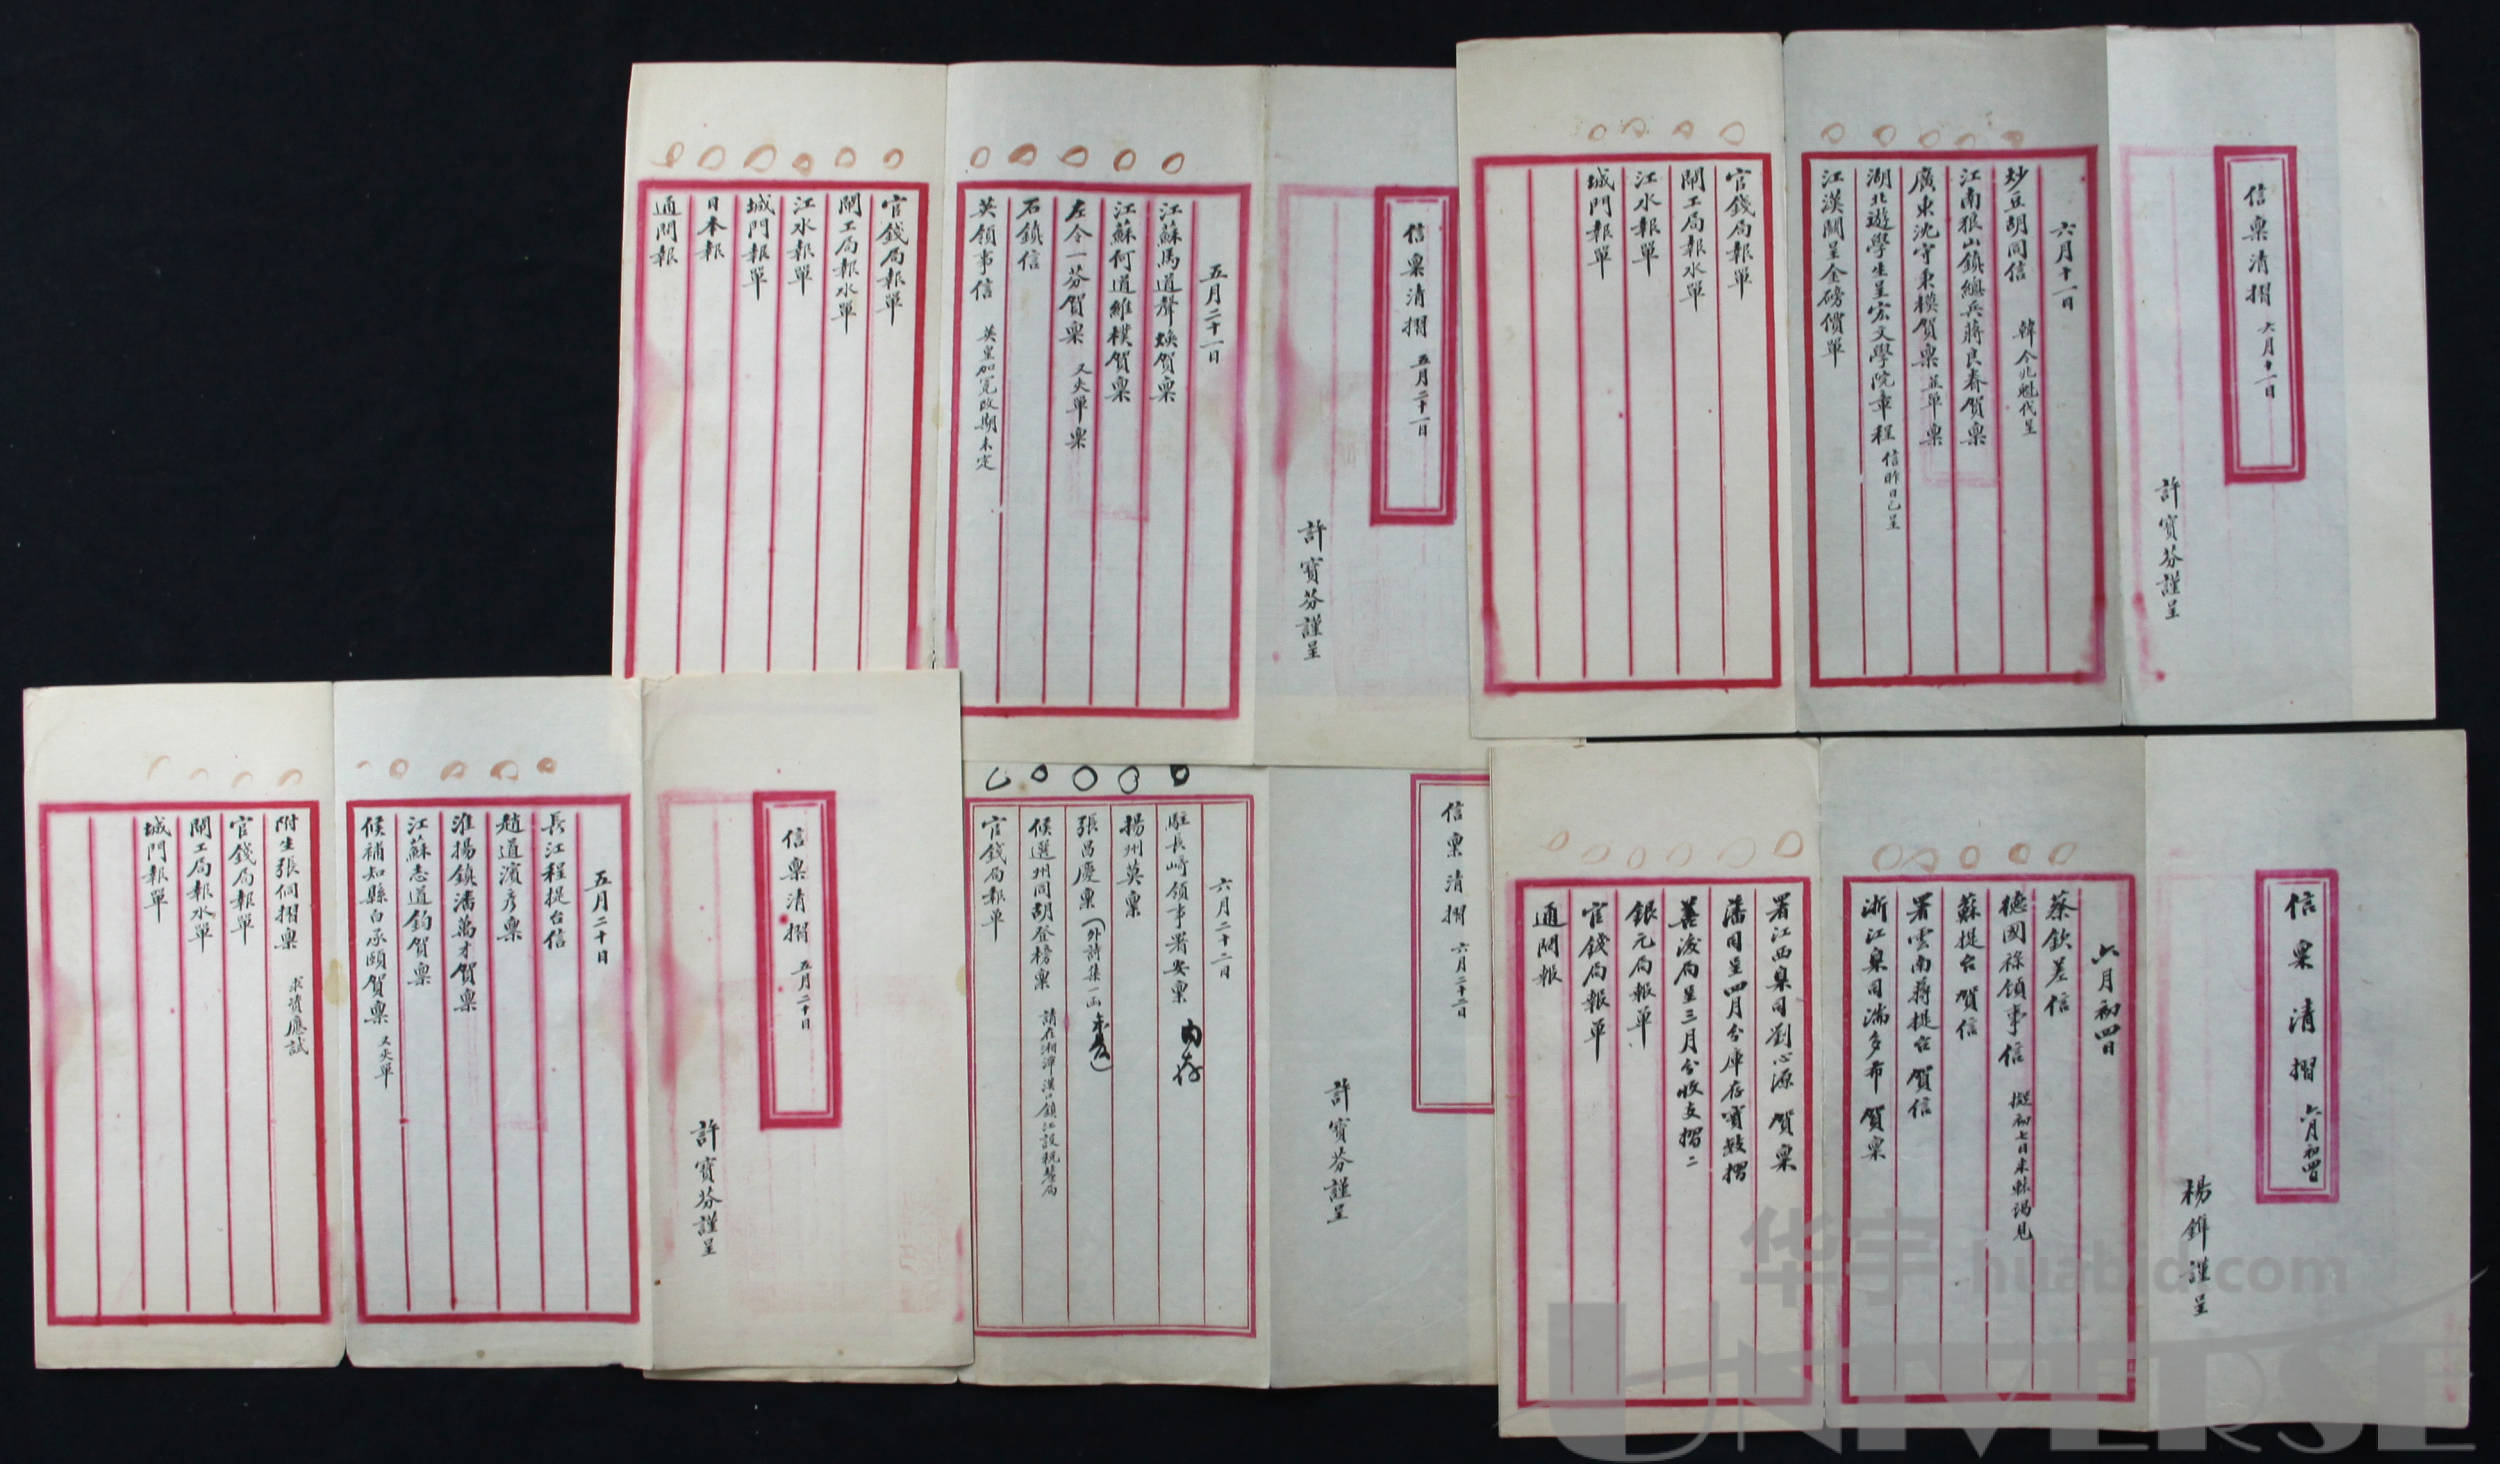 信稟清摺 六月十一日
許寶芬謹呈
六月十一日
炒豆胡同信 韓令兆魁代呈
江南狼山鎮總兵蔣良春賀稟
廣東沈守秉模賀稟 並單稟
湖北遊學生呈宏文學院章程 信昨日已呈
江漢關呈金磅價單
官錢局報單
閘工局報水單
江水報單
城門報單
信稟清摺 五月二十一日
許寶芬謹呈
五月二十一日
江蘇馬道聲煥賀稟
江蘇何道維樸賀稟
左令一芬賀稟 又夾單稟
石鎮信
英領事信 英皇加冕改期未定
官錢局報單
閘工局報水單
江水報單
城門報單
日本報
通聞報
信稟清摺 六月初四日
楊鋅謹呈
六月初四日
蔡欽差信
德國祿領事信 擬初七日來轅謁見
蘇提台賀信
署雲南蔣提台賀信
浙江臬司湍多布賀稟
署江西臬司劉心源賀稟
藩司呈四月分庫存實數摺
善後局呈三月分收支摺二
銀元局報單
官錢局報單
通聞報
信稟清摺 六月二十二日
許寶芬謹呈
六月二十二日
駐長崎領事署安稟 內存
揚州英稟
張昌慶稟（外詩集一函
候選州同胡登榜稟 請在湘潭漢口鎮江設稅釐局
官錢局報單
信稟清摺 五月二十日
許寶芬謹呈
五月二十日
長江程提台信
趙道濱彥稟
淮揚鎮潘萬才賀稟
江蘇志道鈞賀稟
候補知縣白承頤賀稟 又夾單
附生張侗摺稟 求資應試
官錢局報單
閘工局報水單
城門報單
华宇 huabid.com
UNIVERSE